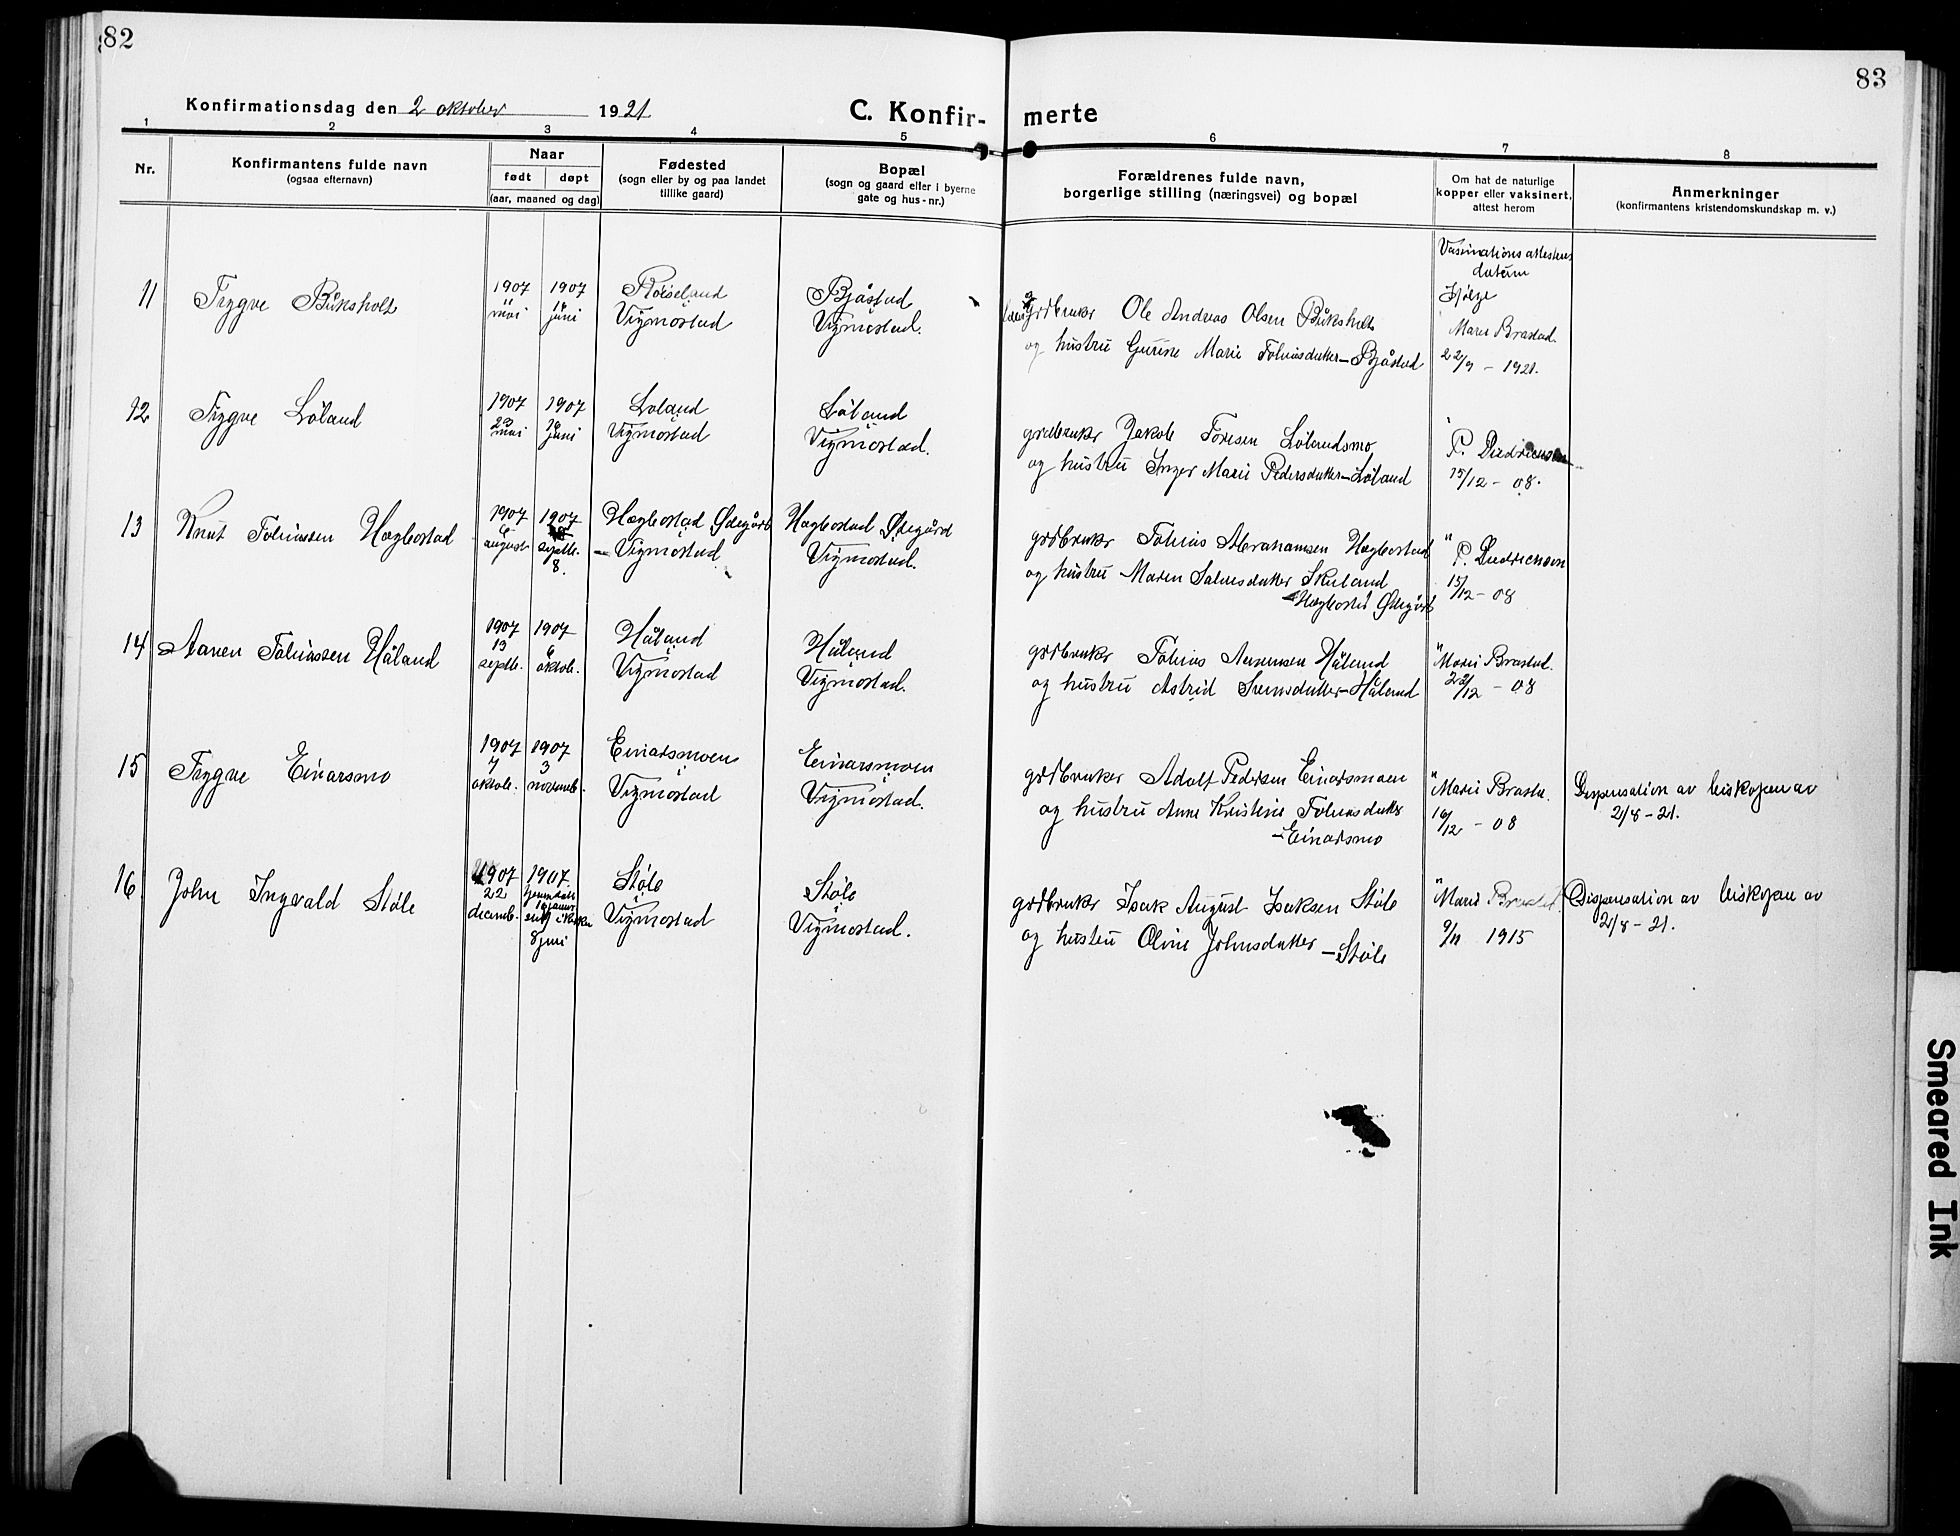 82
83
Konfirmationsdag den 2 oktober 1921
C. Konfir- merte
1 2 3 4 5 6 7 8
Nr.
Konfirmantens fulde navn
(ogsaa efternavn)
Naar
født døpt
(aar, maaned og dag)
Fødested
(sogn eller by og paa landet
tillike gaard)
Bopæl
(sogn og gaard eller i byerne
gate og hus-nr.)
Forældrenes fulde navn,
borgerlige stilling (næringsvei) og bopæl
Om hat de naturlige
kopper eller vaksinert,
attest herom
Anmerkninger
(konfirmantens kristendomskundskap m. v.)
11 Trygve Buksholt
1907
mai
1907
16
juni
Røiseland
Vigmostad
Bjåstad
Vigmostad.
grdbruker Ole Andreas Olsen Buksholt
og hustru Gurine Marie Tobiasdatter - Bjåstad
Vaksinationsattestens
datum
Hjelpe
Marie Brastad.
22/9 - 1921.
12 Trygve Løland
1907
mai
1907
16
juni
Løland
Vigmostad
Løland
Vigmostad.
grdbruker Jakob Toresen Lølandsmo
og hustru Inger Marie Pedersdatter - Løland
" P. Diedrichsen
15/12 - 08.
13 Knut Tobiassen Hægbostad
1907
6
august
1907
septb.
8.
Hægbostad Ødegård
- Vigmostad
Hægbostad Ødegård
Vigmostad.
grdbruker Tobias Abrahamsen Hægbostad
og hustru Maren Salvesdatter Skuland
- Hægbostad Ødegård
" P. Diedrichsen
15/12 - 08
14 Aanen Tobiassen Håland
1907
13
septb.
1907
6
oktob.
Håland
Vigmostad
Håland
Vigmostad.
grdbruker Tobias Aanensen Håland
og hustru Astrid Svensdatter - Håland
" Marie Brastad.
22/12 - 08
15 Trygve Einarsmo
1907
7
oktob.
1907
3
novemb.
Einarsmoen
Vigmostad
Einarsmoen
Vigmostad.
grdbruker Adolf Pedersen Einarsmoen
og hustru Anne Kristine Tobiasdatter
- Einarsmo
" Marie Brasta.
16/12 - 08
Dispensation av biskopen av
2/8 - 21.
16 John Ingvald Støle
1907
22
decemb.
1907.
hjemdøbt
i kirken
8 juni
Støle
Vigmostad
Støle
Vigmostad.
grdbruker Isak August Isaksen Støle
og hustru Oline Johnsdatter - Støle
" Marie Brastad.
9/11 1915
Dispensation av biskopen av
2/8 - 21.
Smeared Ink